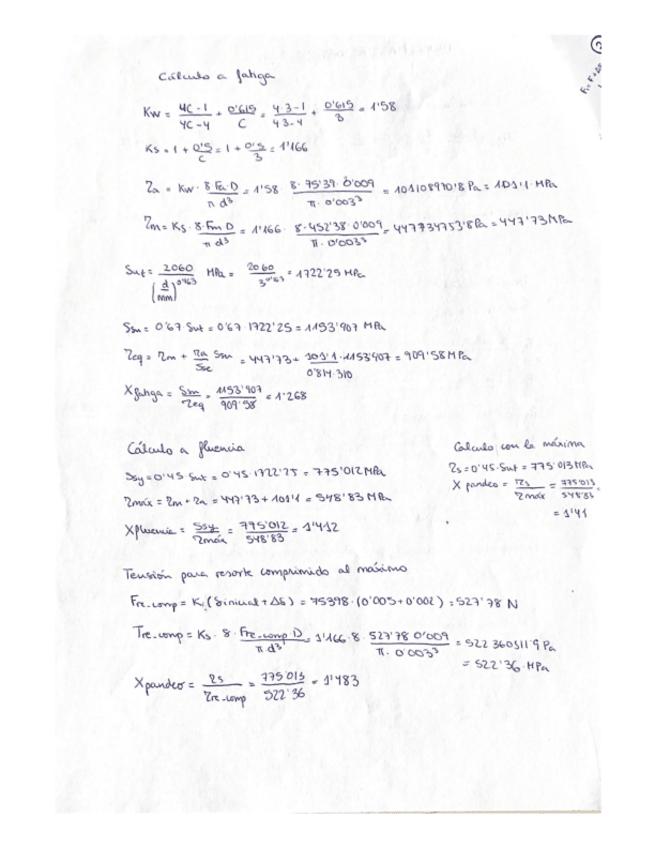 2
Cálculo a fatiga
Kw = 4C-1/4C-4 + 0'615/C = 4·3-1/4·3-4 + 0'615/3 = 1'58
Ks = 1 + 0'5/C = 1 + 0'5/3 = 1'166
τa = Kw · 8·Fa·D/π d³ = 1'58 · 8·75'39·0'009/π·0'003³ = 101108970'8 Pa = 101'1 MPa
τm = Ks · 8·Fm·D/π d³ = 1'166 · 8·452'38·0'009/π·0'003³ = 447734753'8 Pa = 447'73 MPa
Sut = 2060/(d/mm)^0'163 MPa = 2060/3^0'163 = 1722'25 MPa
Ssu = 0'67·Sut = 0'67·1722'25 = 1153'907 MPa
τeq = τm + τa/Sse Ssu = 447'73 + 101'1·1153'907/0'814·310 = 909'58 MPa
Xfatiga = Ssu/τeq = 1153'907/909'58 = 1'268
Cálculo a fluencia
Ssy = 0'45·Sut = 0'45·1722'25 = 775'012 MPa
τmáx = τm + τa = 447'73 + 101'1 = 548'83 MPa
Xfluencia = Ssy/τmáx = 775'012/548'83 = 1'412
Calculo con la máxima
τs = 0'45·Sut = 775'013 MPa
Xpandeo = τs/τmáx = 775'013/548'83
= 1'41
Tensión para resorte comprimido al máximo
Fre_comp = K·(δinicial + Δδ) = 75398·(0'005+0'002) = 527'78 N
τre_comp = Ks · 8 · Fre_comp D/π d³ = 1'166·8· 527'78 0'009/π·0'003³ = 522 360511'9 Pa
= 522'36 MPa
Xpandeo = τs/τre_comp = 775'013/522'36 = 1'483